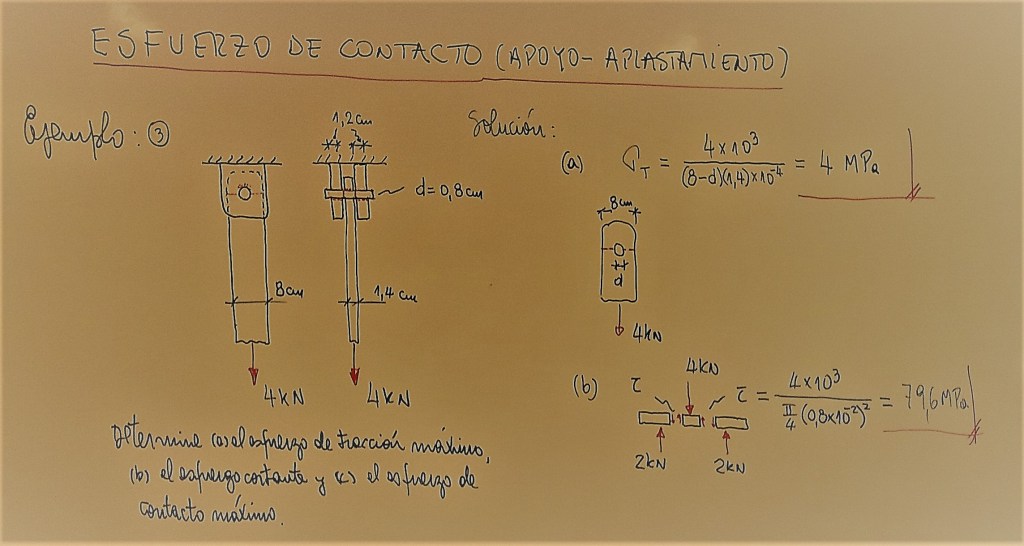 ESFUERZO DE CONTACTO (APOYO-APLASTAMIENTO)
Ejemplo: ③
1,2cm
d=0,8cm
8cm
1,4 cm
4kN
4kN
Determine (a) el esfuerzo de tracción máximo,
(b) el esfuerzo cortante y (c) el esfuerzo de
contacto máximo.
Solución:
(a) σT = 4×10³ / (8-d)(1,4)×10⁻⁴ = 4 MPa
8cm
d
4kN
(b) τ
4kN
τ = 4×10³ / π/4 (0,8×10⁻²)² = 79,6 MPa
2kN
2kN